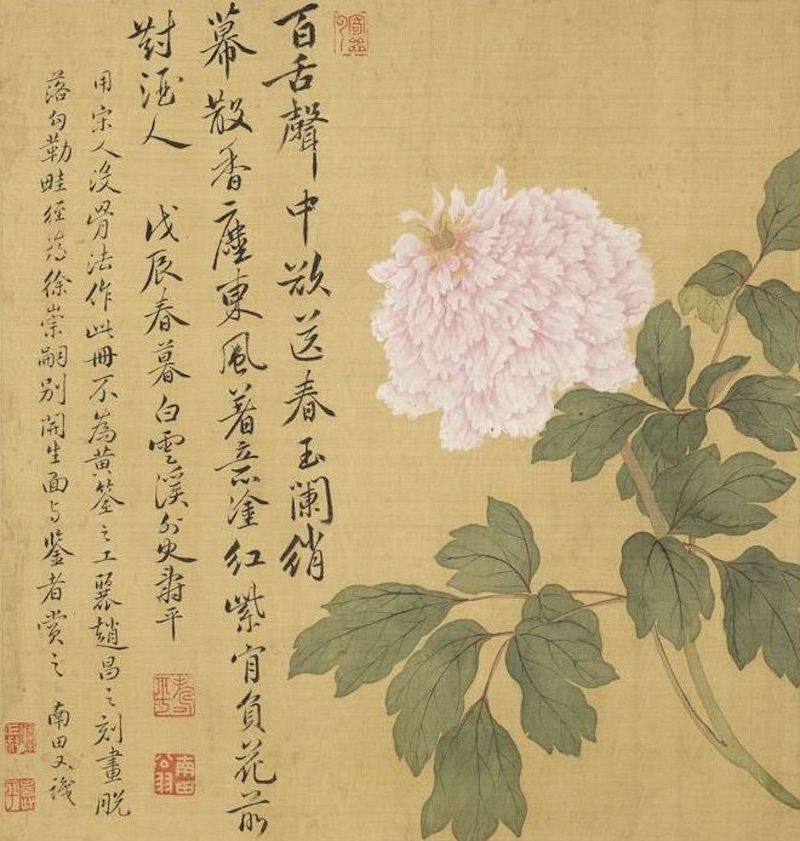 百舌聲中欲送春玉闌綃
幕散香塵東風著意塗紅紫肯負花前
對酒人 戊辰春暮白雲溪外史壽平
用宋人沒骨法作此冊不為黃筌之工麗趙昌之刻畫脫
落勾勒畦徑為徐崇嗣別開生面与鑒者賞之 南田又識
南田翁